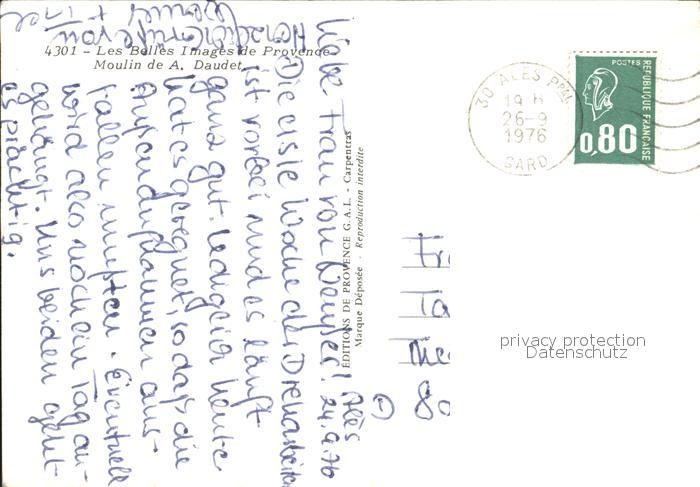 4301 - Les Belles Images de Provence
Moulin de A. Daudet
Alès
24.9.76
Liebe Frau von Denffer!
Die erste Woche der Dreharbeiten
ist vorbei und es läuft
ganz gut. Lediglich heute
hat es geregnet, so daß die
Außenaufnahmen aus-
fallen mußten. Eventuell
wird also noch ein Tag an-
gehängt. Uns beiden geht
es prächtig.
Herzliche Grüße von
ÉDITIONS DE PROVENCE G.A.L. - Carpentras
Marque Déposée - Reproduction interdite
30 ALES PPAL
19 H
26-9
1976
GARD
POSTES
RÉPUBLIQUE FRANÇAISE
0,80
Fr
Ta
80
privacy protection
Datenschutz